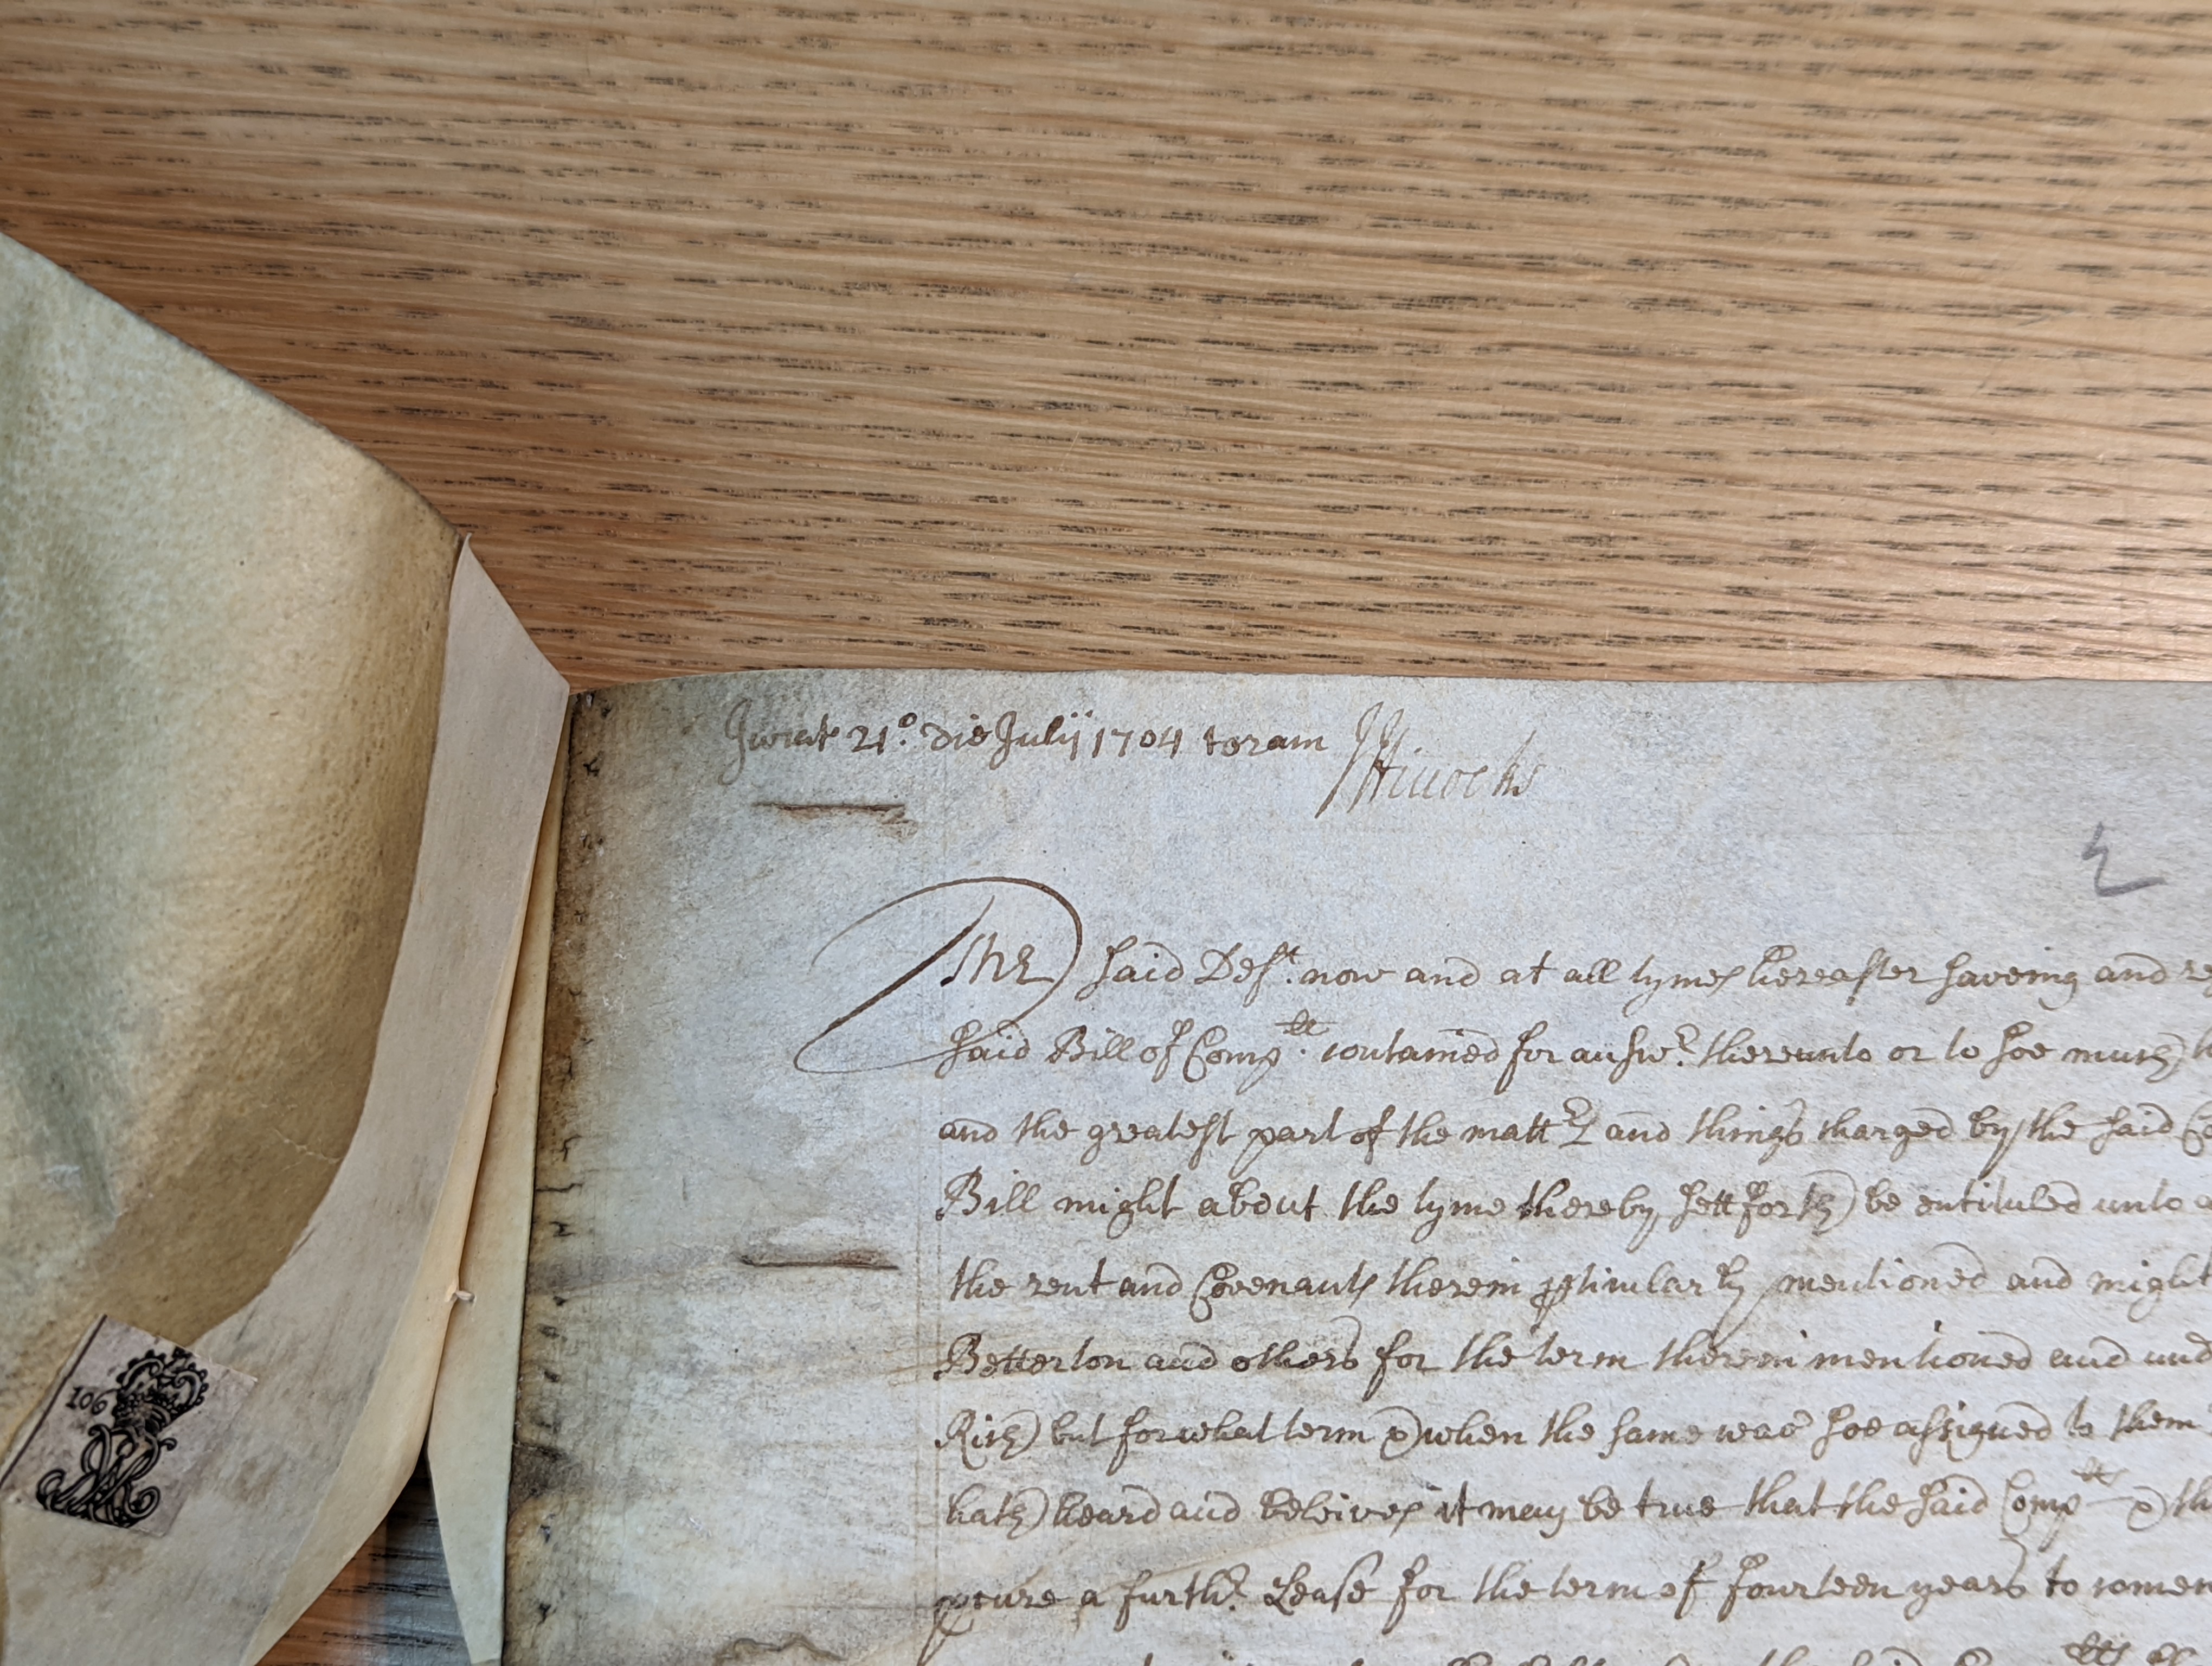 Jurat 21º. die Julij 1704 coram
JHiccocks
2
The said Deft. now and at all tymes hereafter saveing and re
said Bill of Complt. contained for answr. thereunto or to soe much th
and the greatest part of the mattrs and things charged by the said Co
Bill might about the tyme thereby sett forth be entituled unto
the rent and Covenants therein pticularly mentioned and might
Betterton and others for the term therein mentioned and und
Rich but for what term & when the same was soe assigned to them
hath heard and beleives it may be true that the said Complt & th
pcure a furthr. Lease for the term of fourteen years to comen
106